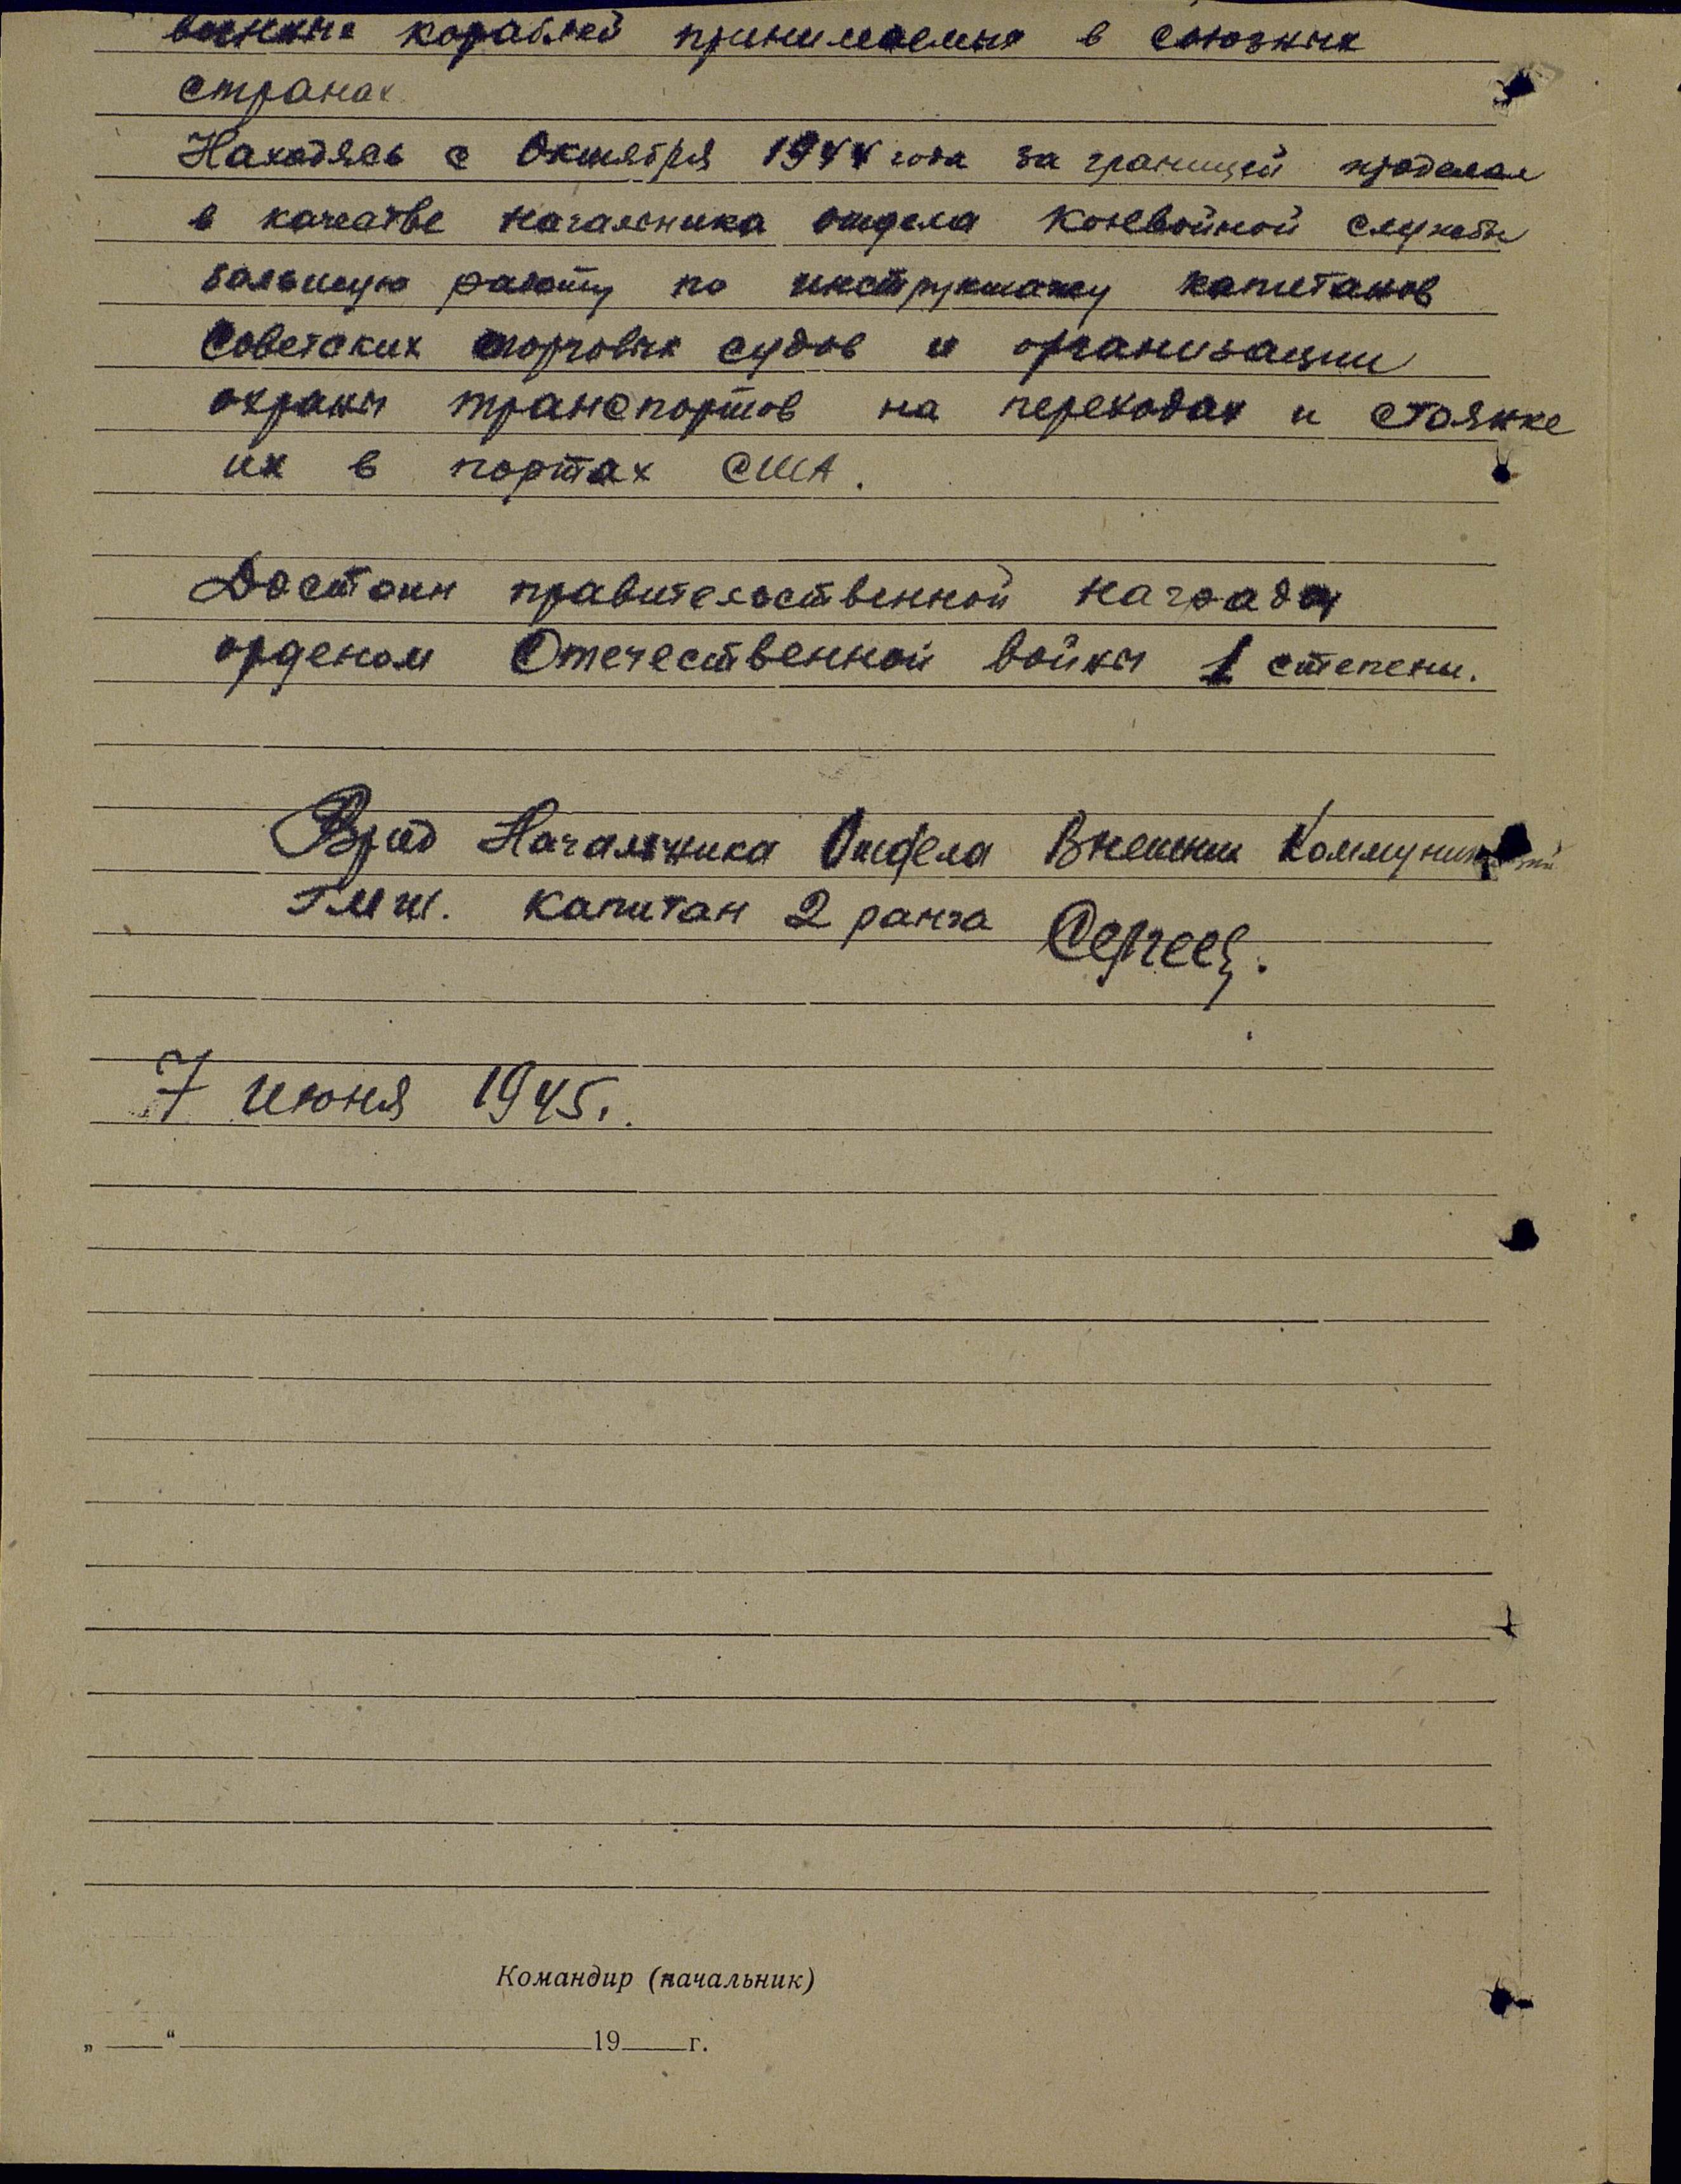 военных кораблей принимаемых в союзных
странах
Находясь с Октября 1944 года за границей проделал
в качестве начальника отдела Конвойной службы
большую работу по инструктажу капитанов
Советских торговых судов и организации
охраны транспортов на переходах и стоянке
их в портах США.
Достоин правительственной награды
орденом Отечественной войны 1 степени.
Врид Начальника Отдела Внешних Коммуникаций
ГМШ. капитан 2 ранга Сергеев.
7 июня 1945.
Командир (начальник)
„ “ 19 г.